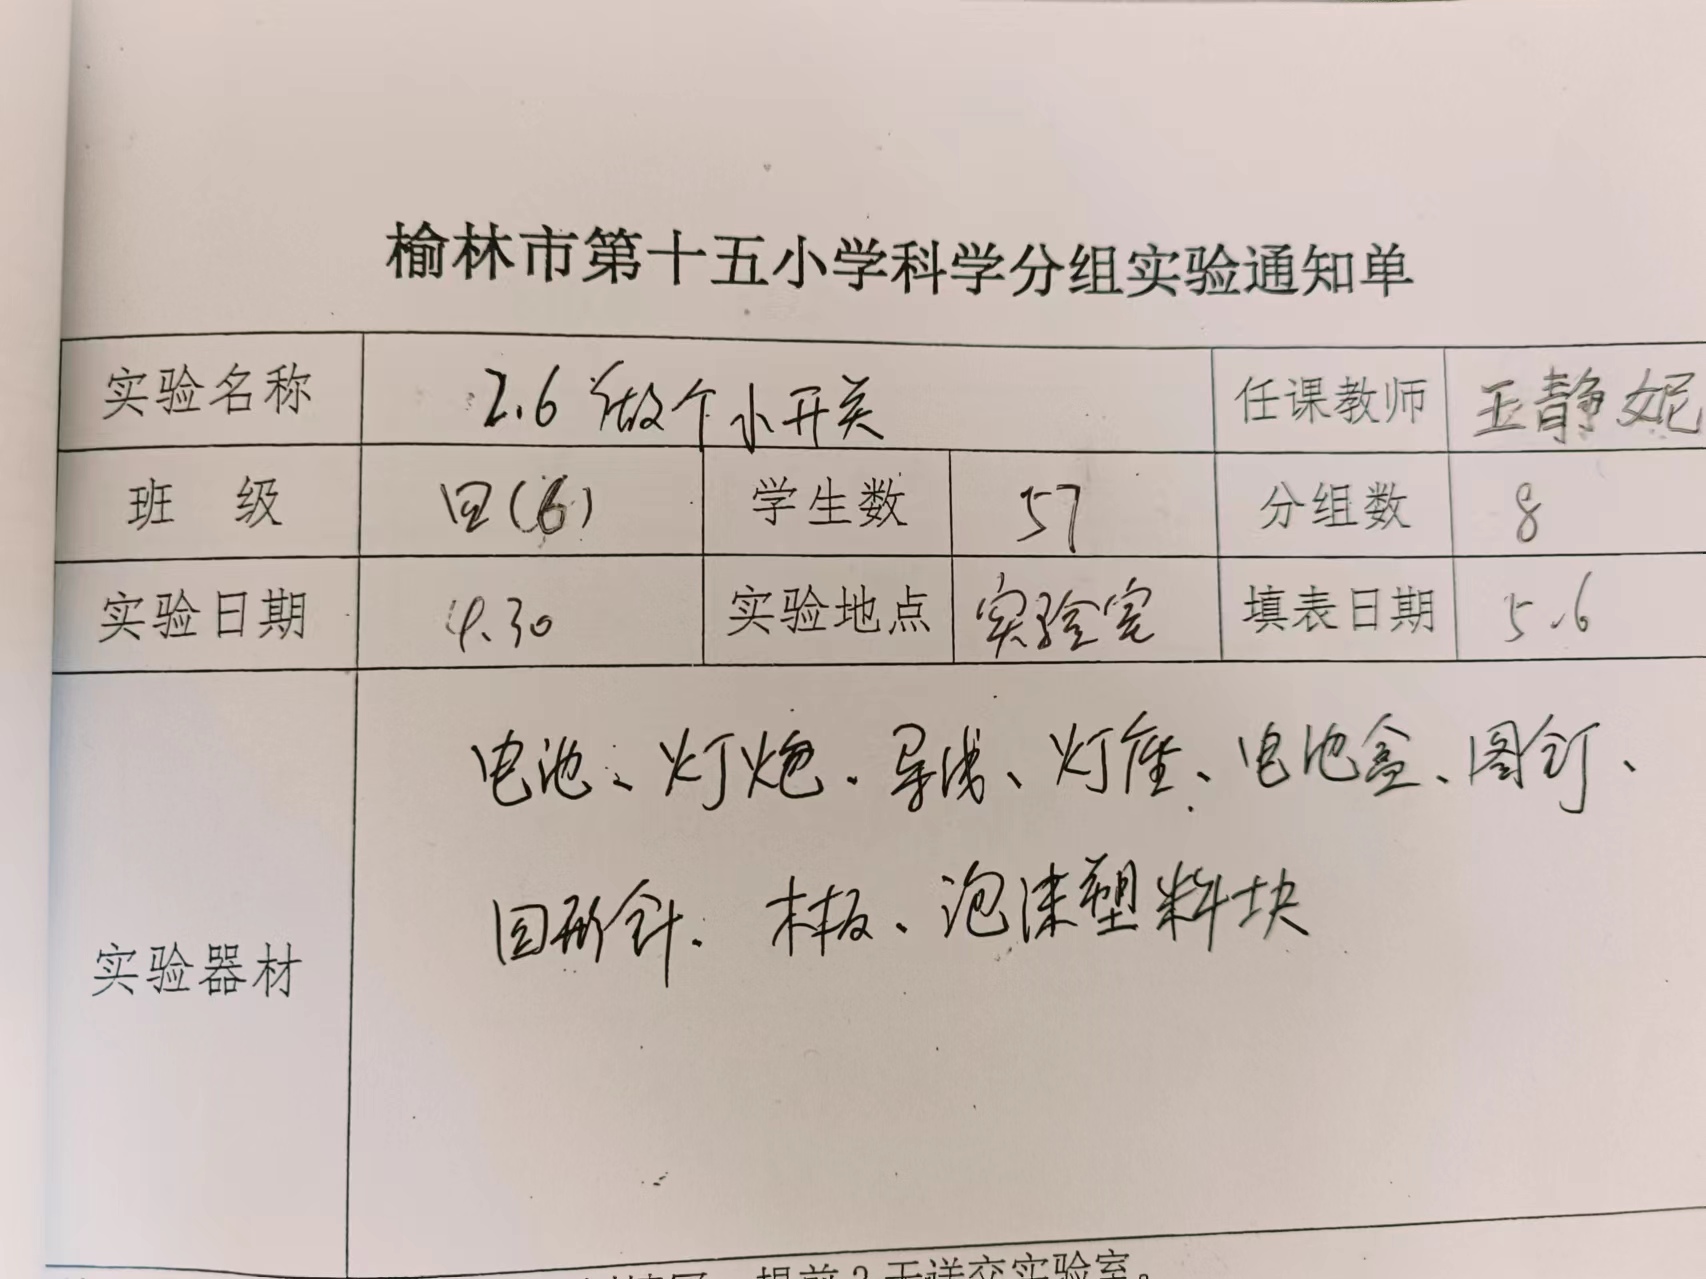 榆林市第十五小学科学分组实验通知单
实验名称 2.6 做个小开关 任课教师 王静妮
班 级 四(6) 学生数 57 分组数 8
实验日期 4.30 实验地点 实验室 填表日期 5.6
电池、灯炮、导线、灯座、电池盒、图钉、
回形针、木板、泡沫塑料块
实验器材
提前2天送交实验室。